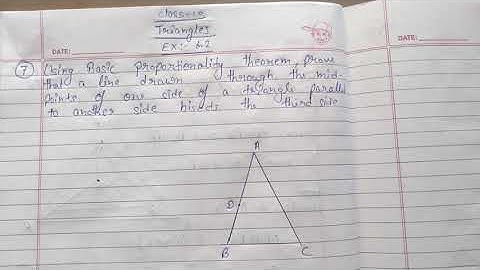 Class-10
Triangles
Ex:- 6.2
DATE:
DATE:
7 Using Basic Proportionality theorem, prove
that a line drawn through the mid-
points of one side of a triangle parallel
to another side bisects the third side
A
D
B
C